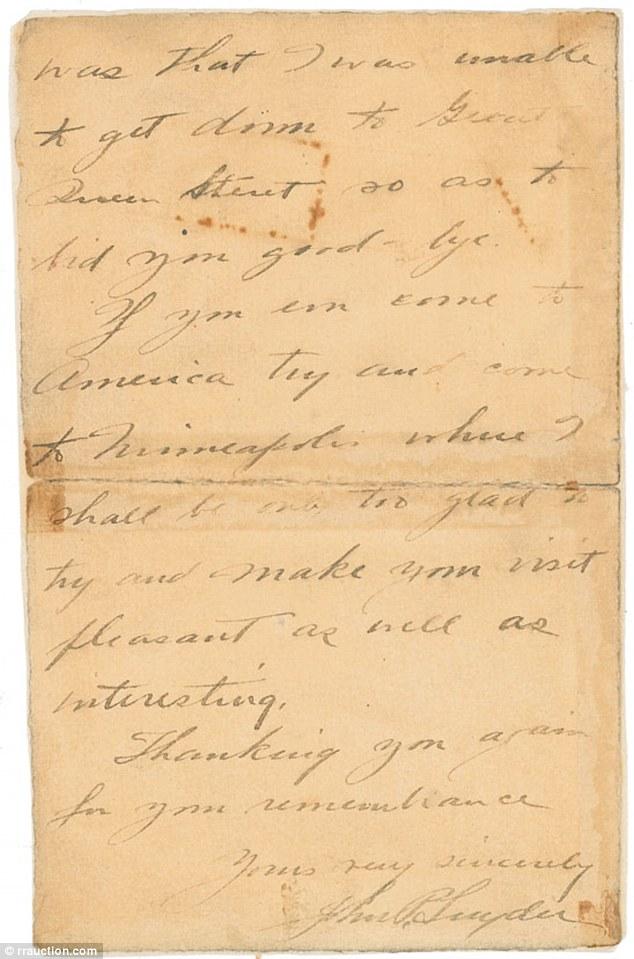 was that I was unable
to get down to Great
Queen Street so as to
bid you good-bye.
If you ever come to
America try and come
to Minneapolis where I
shall be only too glad to
try and make your visit
pleasant as well as
interesting.
Thanking you again
for your remembrance
Yours very sincerely
John P. Snyder
© rrauction.com